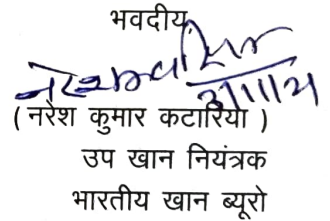 भवदीय,
(नरेश कुमार कटारिया)
उप खान नियंत्रक
भारतीय खान ब्यूरो